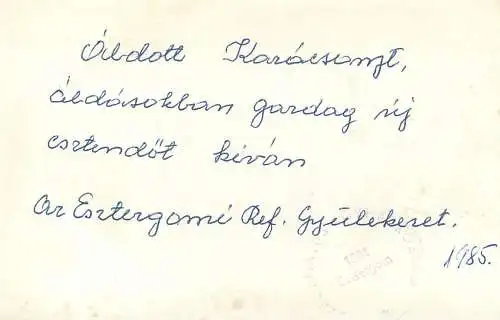 Áldott Karácsonyt,
áldásokban gazdag új
esztendőt kíván
az Esztergomi Ref. Gyülekezet.
1985.